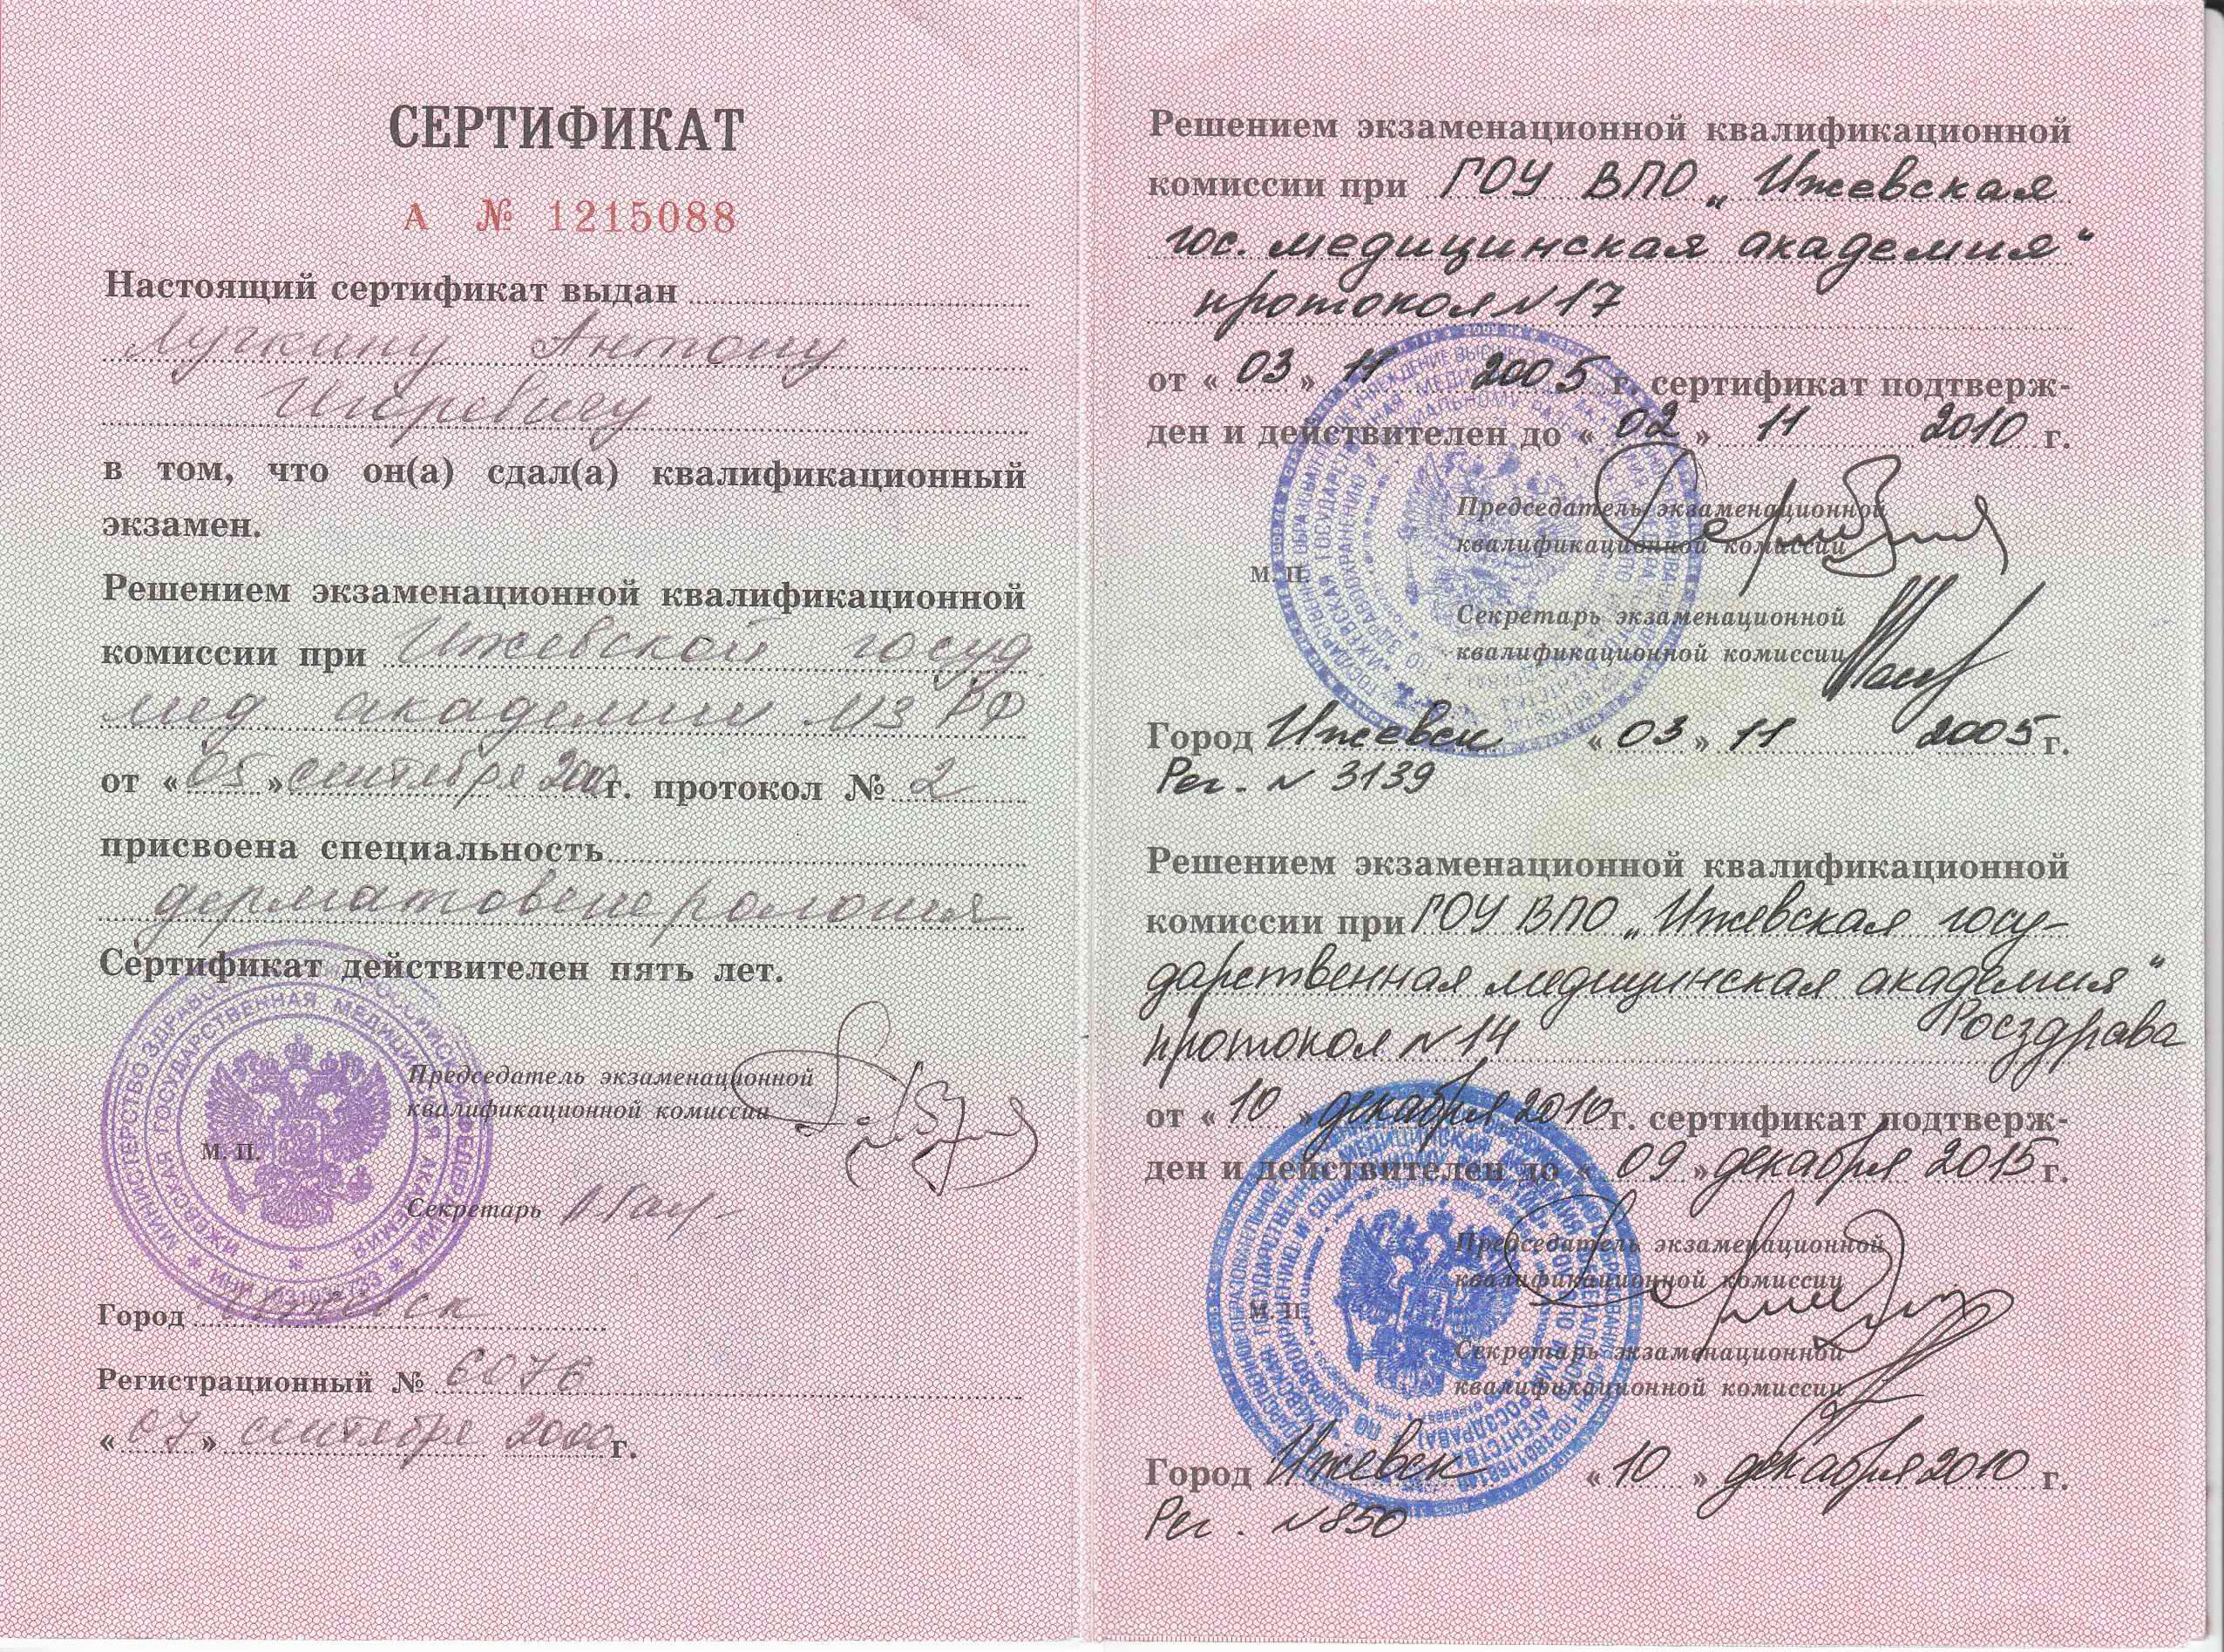 СЕРТИФИКАТ
А № 1215088
Настоящий сертификат выдан
Лучкину Антону
Игоревичу
в том, что он(а) сдал(а) квалификационный
экзамен.
Решением экзаменационной квалификационной
комиссии при Ижевской госуд
мед академии МЗ РФ
от « 05 » сентября 2000 г. протокол № 2
присвоена специальность
дерматовенерология
Сертификат действителен пять лет.
Председатель экзаменационной
квалификационной комиссии
М. П.
Секретарь
Город Ижевск
Регистрационный № 6076
« 07 » сентября 2000 г.
Решением экзаменационной квалификационной
комиссии при ГОУ ВПО „Ижевская
гос. медицинская академия“
протокол N 17
от « 03 » 11 2005 г. сертификат подтверж-
ден и действителен до « 02 » 11 2010 г.
Председатель экзаменационной
квалификационной комиссии
М. П.
Секретарь экзаменационной
квалификационной комиссии
Город Ижевск « 03 » 11 2005 г.
Рег. N 3139
Решением экзаменационной квалификационной
комиссии при ГОУ ВПО „Ижевская госу-
дарственная медицинская академия“
Росздрава
протокол N 14
от « 10 » декабря 2010 г. сертификат подтверж-
ден и действителен до « 09 » декабря 2015 г.
Председатель экзаменационной
квалификационной комиссии
М. П.
Секретарь экзаменационной
квалификационной комиссии
Город Ижевск « 10 » декабря 2010 г.
Рег. N 850